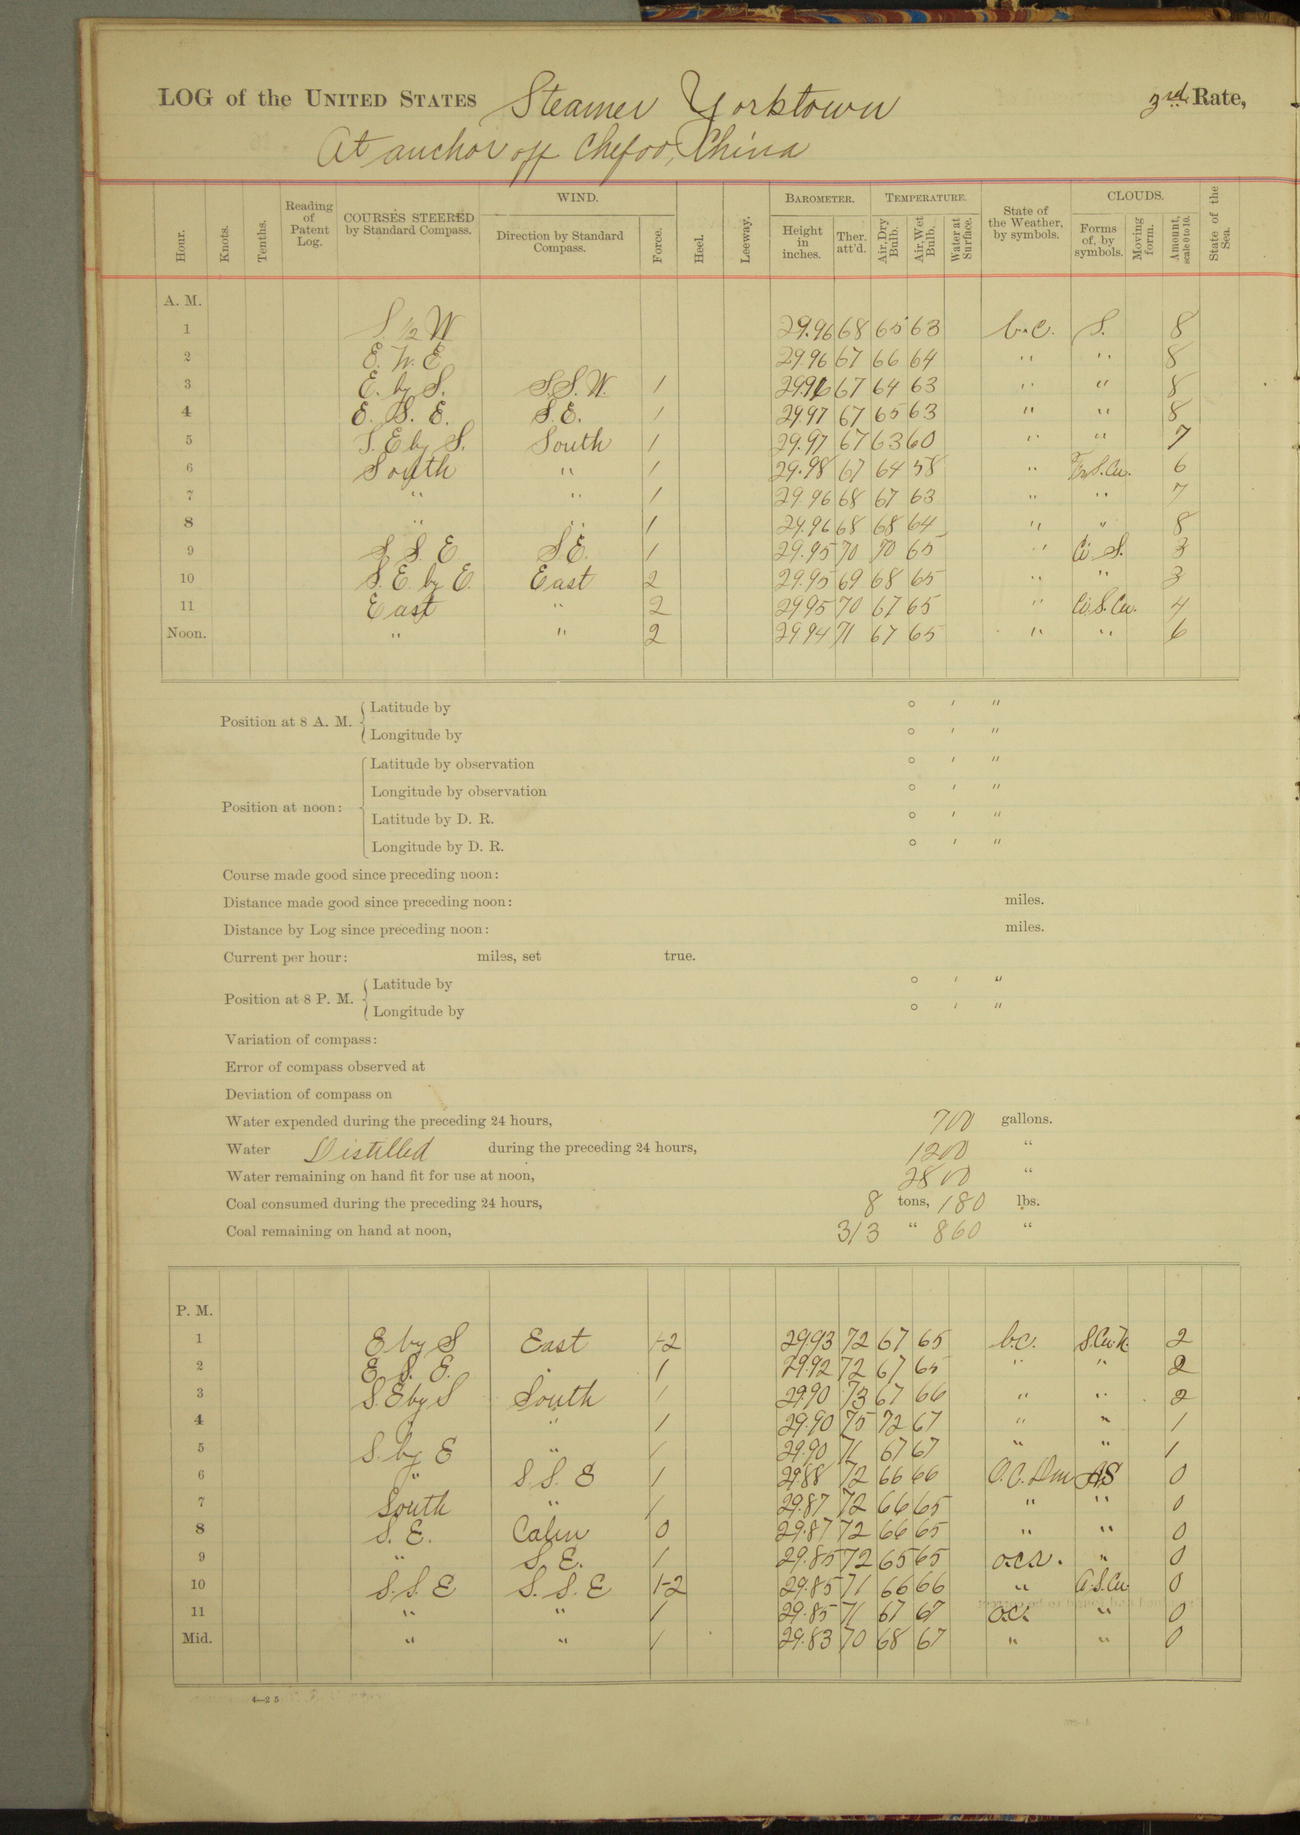 LOG of the UNITED STATES Steamer Yorktown 3rd Rate,
At anchor off Chefoo, China
Hour. Knots. Tenths. Reading of Patent Log. COURSES STEERED by Standard Compass. WIND. Direction by Standard Compass. Force. Heel. Leeway. BAROMETER. Height in inches. Ther. att'd. TEMPERATURE. Air, Dry Bulb. Air, Wet Bulb. Water at Surface. State of the Weather, by symbols. CLOUDS. Forms of, by symbols. Moving form. Amount, scale 0 to 10. State of the Sea.
A. M.
1 S 1/2 W 29.96 68 65 63 b.c. S. 8
2 E. N. E 29.96 67 66 64 " " 8
3 E. by S. S.S.W. 1 29.96 67 64 63 " " 8
4 E. S. E. S.E. 1 29.97 67 65 63 " " 8
5 S.E by S. South 1 29.97 67 63 60 " " 7
6 South " 1 29.98 67 64 58 " S.Cu. 6
7 " " 1 29.96 68 67 63 " " 7
8 " " 1 29.96 68 68 64 " " 8
9 S. S. E S.E. 1 29.95 70 70 65 " Ci. S. 3
10 S. E. by E. East 2 29.95 69 68 65 " " 3
11 East " 2 29.95 70 67 65 " Ci.S.Cu. 4
Noon. " " 2 29.94 71 67 65 " " 6
Position at 8 A. M. Latitude by ° ′ ″
Longitude by ° ′ ″
Position at noon: Latitude by observation ° ′ ″
Longitude by observation ° ′ ″
Latitude by D. R. ° ′ ″
Longitude by D. R. ° ′ ″
Course made good since preceding noon:
Distance made good since preceding noon: miles.
Distance by Log since preceding noon: miles.
Current per hour: miles, set true.
Position at 8 P. M. Latitude by ° ′ ″
Longitude by ° ′ ″
Variation of compass:
Error of compass observed at
Deviation of compass on
Water expended during the preceding 24 hours, 700 gallons.
Water Distilled during the preceding 24 hours, 1200 "
Water remaining on hand fit for use at noon, 2800 "
Coal consumed during the preceding 24 hours, 8 tons, 180 lbs.
Coal remaining on hand at noon, 313 " 860 "
P. M.
1 E by S East 1-2 29.93 72 67 65 b.c. S.Cu.N. 2
2 E. S. E. " 1 29.92 72 67 65 " " 2
3 S.E by S South 1 29.90 73 67 66 " " 2
4 " " 1 29.90 75 72 67 " " 1
5 S. by E " 1 29.90 71 67 67 " " 1
6 " S. S. E 1 29.88 72 66 66 O.C. S 0
7 South " 1 29.87 72 66 65 " " 0
8 S. E. Calm 0 29.87 72 66 65 " " 0
9 " S. E. 1 29.85 72 65 65 " 0
10 S. S. E S. S. E 1-2 29.85 71 66 66 " S.Cu. 0
11 " " 1 29.85 71 67 67 o.c. " 0
Mid. " " 1 29.83 70 68 67 " " 0
4—25